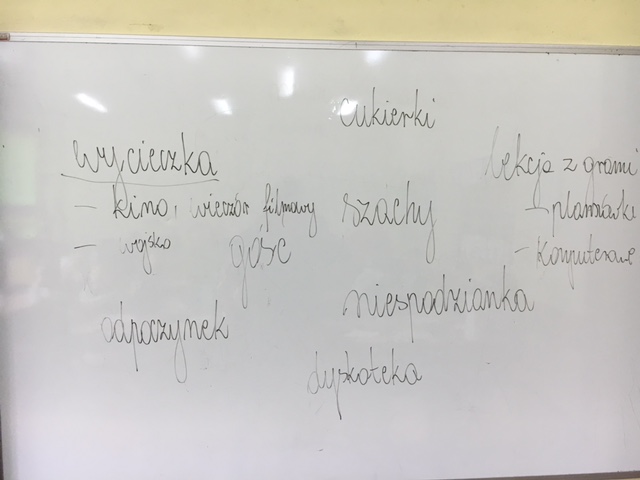 Cukierki
wycieczka
- kino, wieczór filmowy
- wojsko
gość
szachy
lekcja z grami
- planszówki
- komputerowe
niespodzianka
odpoczynek
dyskoteka